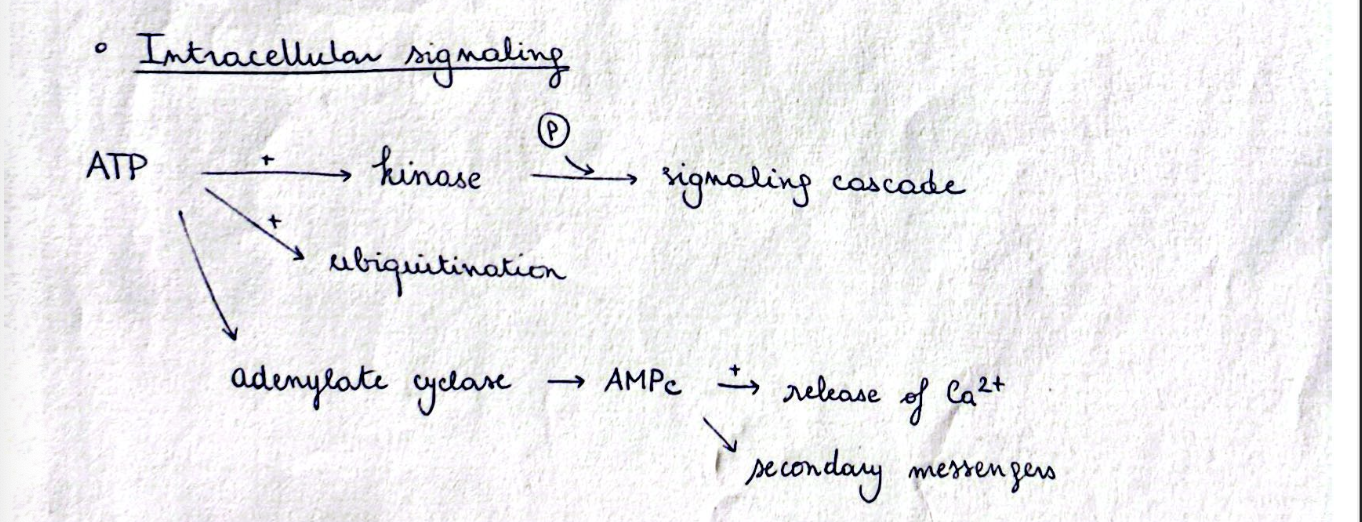 ° Intracellular signaling
P
ATP + kinase signaling cascade
+
ubiquitination
adenylate cyclase → AMPc + → release of Ca²⁺
secondary messengers